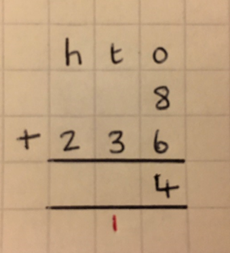 h t o
8
+ 2 3 6
4
1